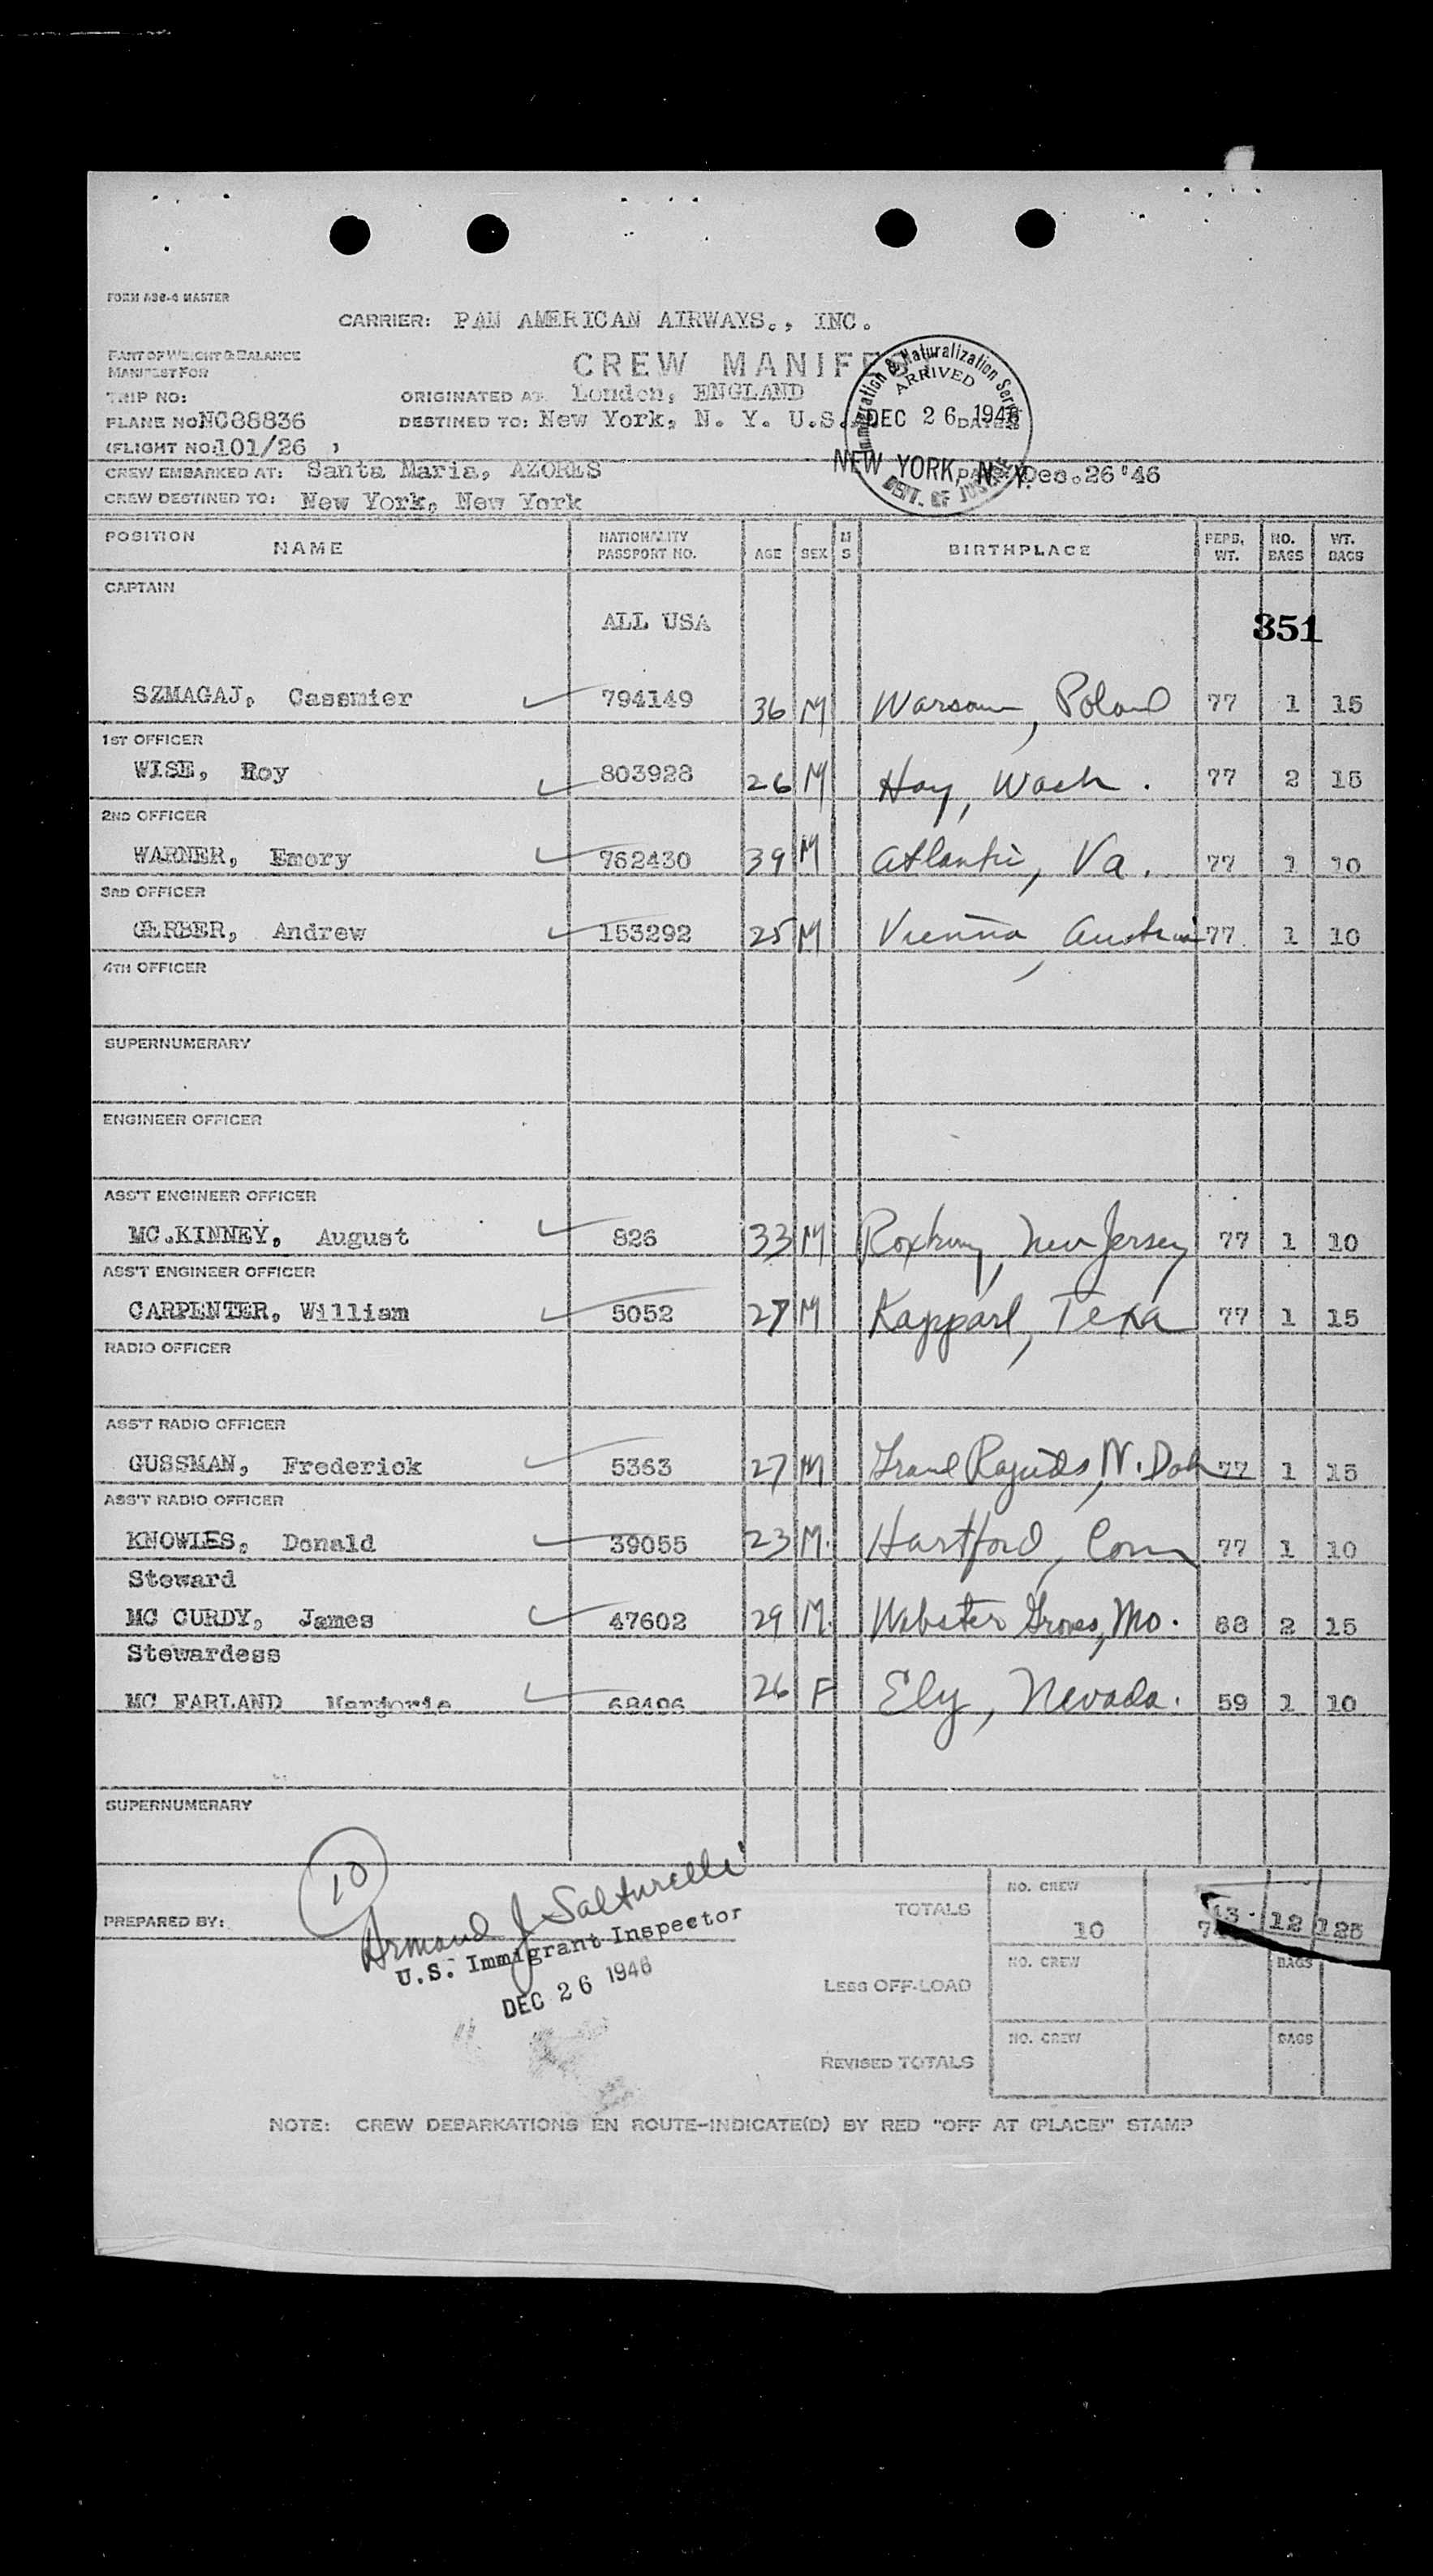 FORM A36-4 MASTER
CARRIER: PAN AMERICAN AIRWAYS., INC.
PART OF WEIGHT & BALANCE
MANIFEST FOR
CREW MANIFEST
Immigration & Naturalization Service
ARRIVED
DEC 26 1946
NEW YORK, N.Y.
DEPT. OF JUSTICE
TRIP NO:
ORIGINATED AT London, ENGLAND
PLANE NO NC88836
DESTINED TO: New York, N. Y. U.S.A.
(FLIGHT NO: 101/26 )
CREW EMBARKED AT: Santa Maria, AZORES Dec. 26 '46
CREW DESTINED TO: New York, New York
POSITION NAME NATIONALITY PASSPORT NO. AGE SEX M S BIRTHPLACE PERS. WT. NO. BAGS WT. BAGS
CAPTAIN
ALL USA
351
SZMAGAJ, Cassmier 794149 36 M Warsaw, Poland 77 1 15
1ST OFFICER
WISE, Roy 803928 26 M Hay, Wash. 77 2 15
2ND OFFICER
WARNER, Emory 762430 39 M Atlantic, Va. 77 1 10
3RD OFFICER
GERBER, Andrew 153292 25 M Vienna, Austria 77 1 10
4TH OFFICER
SUPERNUMERARY
ENGINEER OFFICER
ASS'T ENGINEER OFFICER
MC.KINNEY, August 826 33 M Roxbury, New Jersey 77 1 10
ASS'T ENGINEER OFFICER
CARPENTER, William 5052 27 M Texa 77 1 15
RADIO OFFICER
ASS'T RADIO OFFICER
GUSSMAN, Frederick 5363 27 M Grand Rapids, N. Dak 77 1 15
ASS'T RADIO OFFICER
KNOWLES, Donald 39055 23 M. Hartford, Conn 77 1 10
Steward
MC CURDY, James 47602 29 M. Webster Groves, Mo. 68 2 15
Stewardess
MC FARLAND Marjorie 68496 26 F Ely, Nevada. 59 1 10
SUPERNUMERARY
10
Armand J. Salturelli
PREPARED BY:
U.S. Immigrant Inspector
DEC 26 1946
TOTALS NO. CREW 10 12 125
LESS OFF-LOAD NO. CREW BAGS
REVISED TOTALS NO. CREW BAGS
NOTE: CREW DEBARKATIONS EN ROUTE-INDICATE(D) BY RED "OFF AT (PLACE)" STAMP